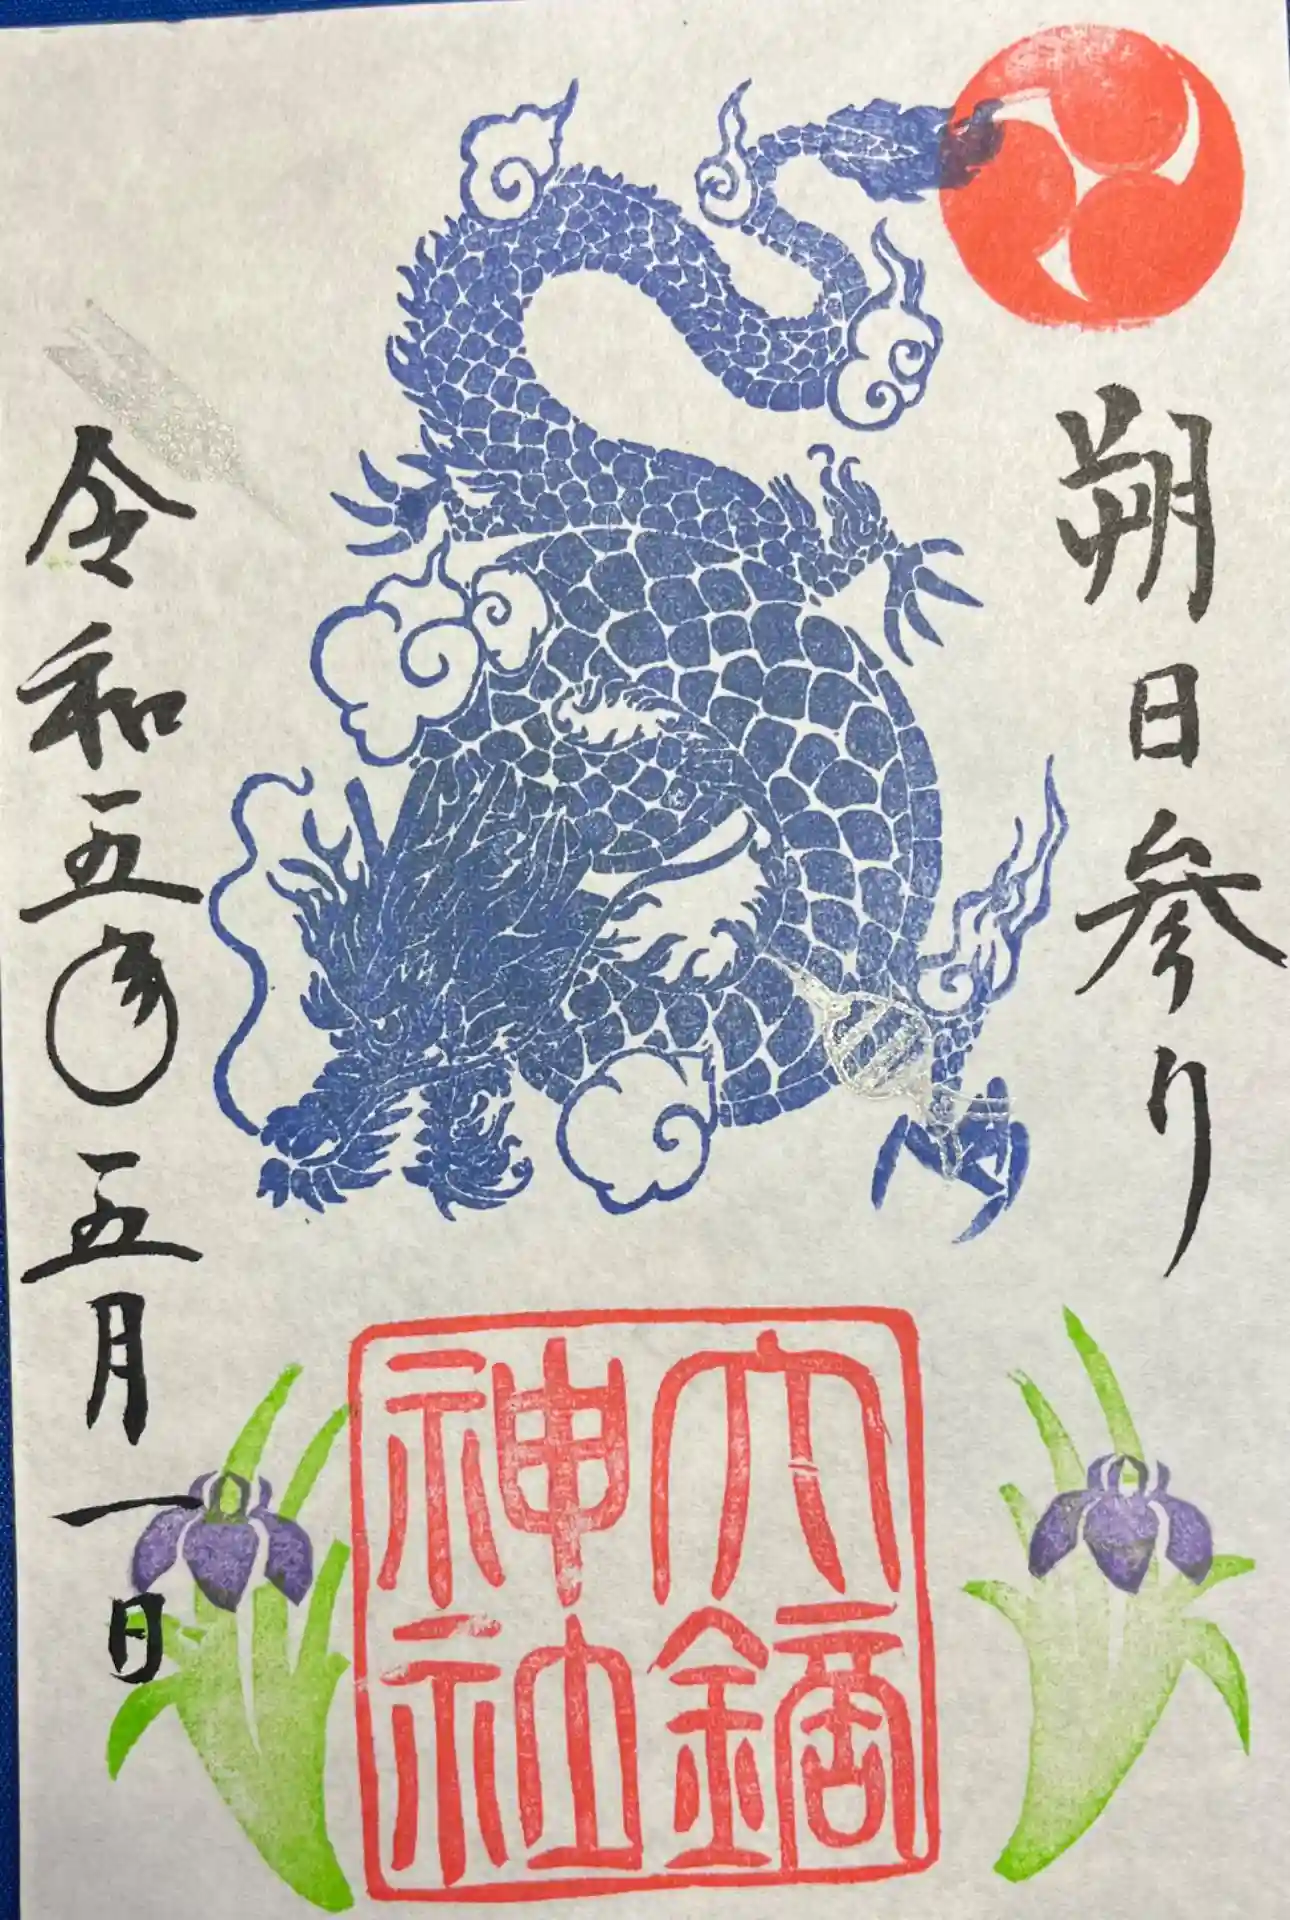 朔日参り
大鏑神社
令和五年五月一日